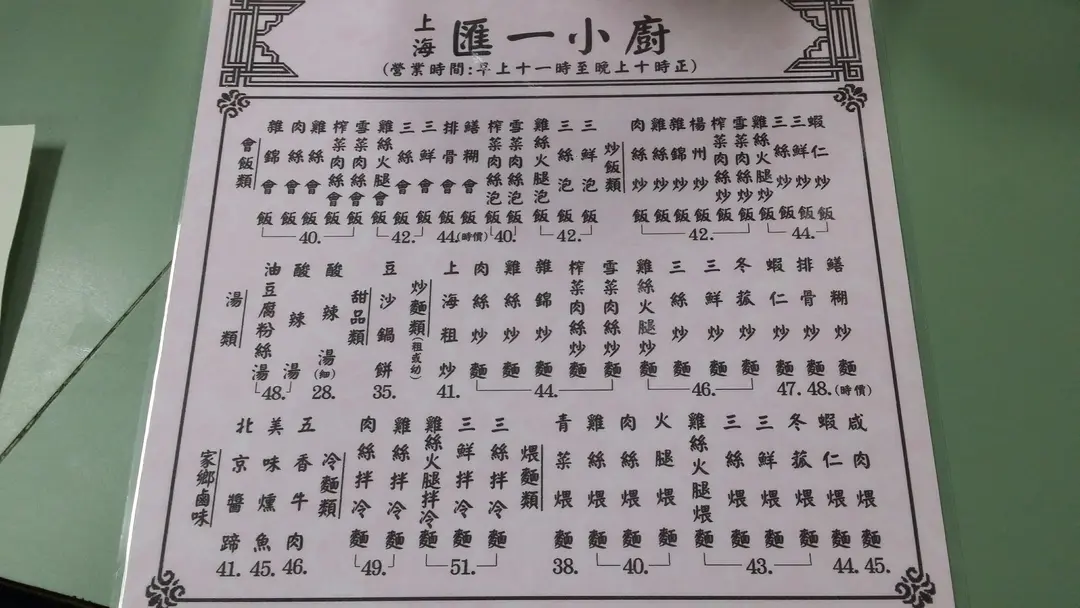 上海 匯一小廚
(營業時間:早上十一時至晚上十時正)
會飯類
雜錦會飯
肉絲會飯
雞絲會飯
榨菜肉絲會飯
雪菜肉絲會飯
40.
雞絲火腿會飯
三絲會飯
三鮮會飯
42.
排骨會飯
44.
鱔糊會飯
(時價)
榨菜肉絲泡飯
雪菜肉絲泡飯
40.
雞絲火腿泡飯
三絲泡飯
三鮮泡飯
42.
炒飯類
肉絲炒飯
雞絲炒飯
雜錦炒飯
楊州炒飯
榨菜肉絲炒飯
雪菜肉絲炒飯
雞絲火腿炒飯
42.
三絲炒飯
三鮮炒飯
蝦仁炒飯
44.
湯類
油豆腐粉絲湯
酸辣湯
48.
酸辣湯(細)
28.
甜品類
豆沙鍋餅
35.
炒麵類(租或幼)
上海租炒
41.
肉絲炒麵
雞絲炒麵
雜錦炒麵
榨菜肉絲炒麵
雪菜肉絲炒麵
44.
雞絲火腿炒麵
三絲炒麵
三鮮炒麵
冬菰炒麵
46.
蝦仁炒麵
47.
排骨炒麵
48.
鱔糊炒麵
(時價)
家鄉鹵味
北京醬蹄
41.
美味燻魚
45.
五香牛肉
46.
冷麵類
肉絲拌冷麵
雞絲拌冷麵
49.
雞絲火腿拌冷麵
三鮮拌冷麵
三絲拌冷麵
51.
煨麵類
青菜煨麵
38.
雞絲煨麵
肉絲煨麵
火腿煨麵
40.
雞絲火腿煨麵
三絲煨麵
三鮮煨麵
冬菰煨麵
43.
蝦仁煨麵
44.
咸肉煨麵
45.